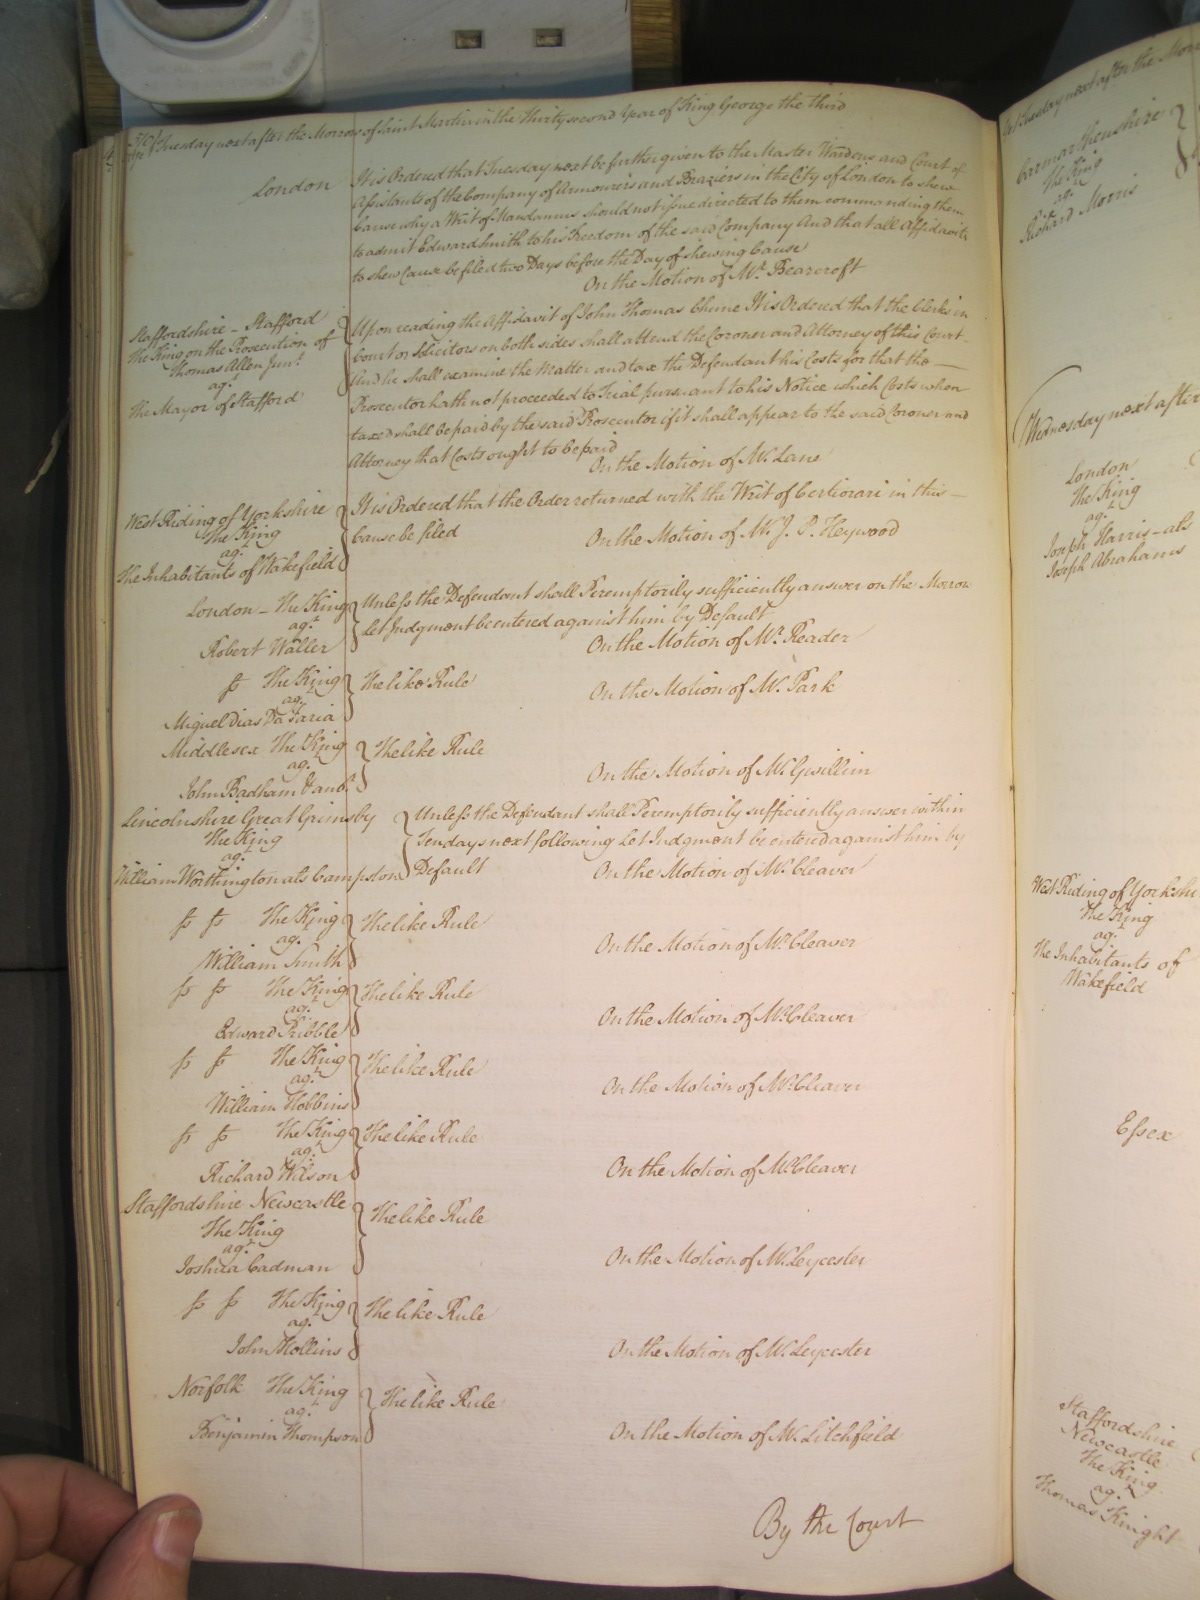 Tuesday next after the Morrow of Saint Martin in the Thirty second Year of King George the third
London
It is Ordered that Tuesday next be further given to the Master Wardens and Court of
Assistants of the Company of Armourers and Braziers in the City of London to shew
Cause why a Writ of Mandamus should not issue directed to them commanding them
to admit Edward Smith to his Freedom of the said Company And that all Affidavits
to shew Cause be filed two Days before the Day of shewing Cause
On the Motion of Mr. Bearcroft
Staffordshire - Stafford
The King on the Prosecution of
Thomas Allen Junr.
agt.
The Mayor of Stafford
Upon reading the Affidavit of John Thomas It is Ordered that the Clerks in
Court or Solicitors on both sides shall attend the Coroner and Attorney of this Court
And he shall examine the Matter and tax the Defendant his Costs for that the
Prosecutor hath not proceeded to Trial pursuant to his Notice which Costs when
taxed shall be paid by the said Prosecutor if it shall appear to the said Coroner and
Attorney that Costs ought to be paid
On the Motion of Mr. Lane
West Riding of Yorkshire
The King
agt.
The Inhabitants of Wakefield
It is Ordered that the Order returned with the Writ of Certiorari in this
Cause be filed
On the Motion of Mr. J. P. Heywood
London - The King
agt.
Robert Waller
Unless the Defendant shall Peremptorily sufficiently answer on the Morrow
let Judgment be entered against him by Default
On the Motion of Mr. Reader
The King
agt.
Miguel Dias Da Faria
The like Rule
On the Motion of Mr. Park
Middlesex The King
agt.
John Badham
The like Rule
On the Motion of Mr. Gwillim
Lincolnshire Great Grimsby
The King
agt.
William Worthington als Campston
Unless the Defendant shall Peremptorily sufficiently answer within
Ten days next following Let Judgment be entered against him by
Default
On the Motion of Mr. Cleaver
The King
agt.
William Smith
The like Rule
On the Motion of Mr. Cleaver
The King
agt.
Edward Pribble
The like Rule
On the Motion of Mr. Cleaver
The King
agt.
William Hobbins
The like Rule
On the Motion of Mr. Cleaver
The King
agt.
Richard Wilson
The like Rule
On the Motion of Mr. Cleaver
Staffordshire Newcastle
The King
agt.
Joshua Cadman
The like Rule
On the Motion of Mr. Leycester
The King
agt.
John Hollins
The like Rule
On the Motion of Mr. Leycester
Norfolk The King
agt.
Benjamin Thompson
The like Rule
On the Motion of Mr. Litchfield
By the Court
Tuesday next after the
Carmarthenshire
The King
agt.
Richard Morris
Wednesday next after
London
The King
agt.
Joseph Harris - als
Joseph Abrahams
West Riding of
The King
agt.
The Inhabitants of
Wakefield
Essex
Staffordshire
Newcastle
The King
agt.
Thomas Knight